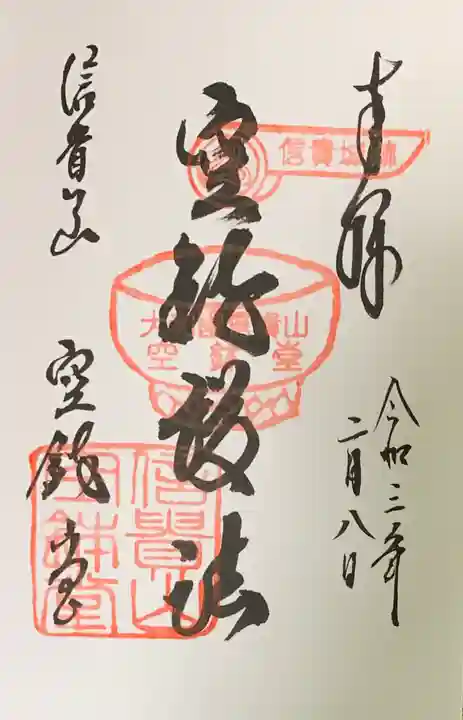 奉拝
令和三年
二月八日
空鉢護法
信貴山
空鉢堂
信貴城跡
信貴山
空鉢堂
信貴山
空鉢堂